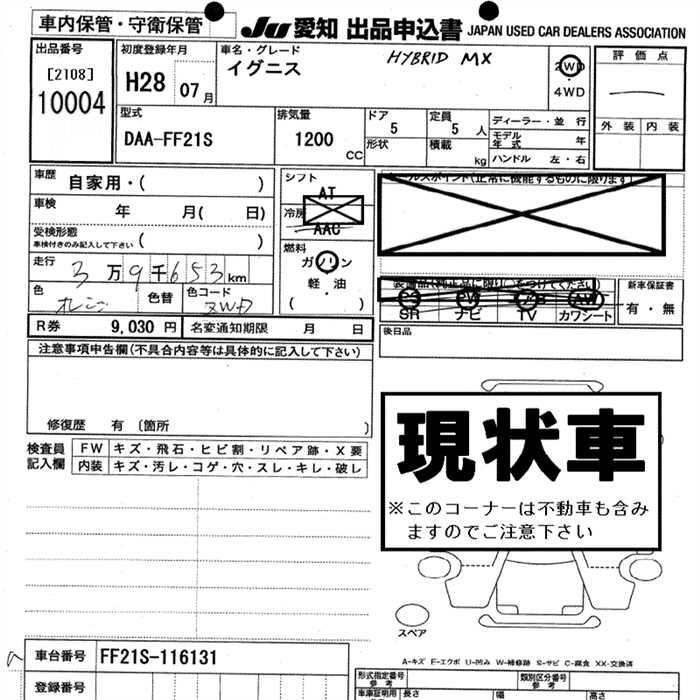 車内保管・守衛保管
JU 愛知 出品申込書 JAPAN USED CAR DEALERS ASSOCIATION
出品番号
[2108]
10004
初度登録年月
H28 07月
車名・グレード
イグニス
HYBRID MX
2WD
4WD
評価点
外装 内装
型式
DAA-FF21S
排気量
1200 CC
ドア
5
形状
定員
5 人
積載
kg
ディーラー・並 行
モデル年式 年
ハンドル 左・右
車歴 自家用・( )
車検 年 月( 日)
受検形態
車検付きのみ記入して下さい ( )
走行 3万9千653km
色 オレンジ 色替 色コード ZWD
シフト
AT
冷房
AAC
燃料
ガソリン
軽・油
( )
セールスポイント(正常に機能するものに限ります)
装備品(純正品に限り○をつけてください)
SR ナビ TV カワシート
AW
新車保証書
有・無
後日品
R券 9,030円 名変通知期限 月 日
注意事項申告欄(不具合内容等は具体的に記入して下さい)
修復歴 有 〔箇所 〕
検査員記入欄
FW キズ・飛石・ヒビ割・リペア跡・X要
内装 キズ・汚レ・コゲ・穴・スレ・キレ・破レ
現状車
※このコーナーは不動車も含み
ますのでご注意下さい
スペア
A-キズ E-エクボ U-凹み W-補修跡 S-サビ C-腐食 XX-交換済
車台番号 FF21S-116131
登録番号
形式指定番号
参考
類別区分番号
参考
車庫証明用
長さ 幅 高さ